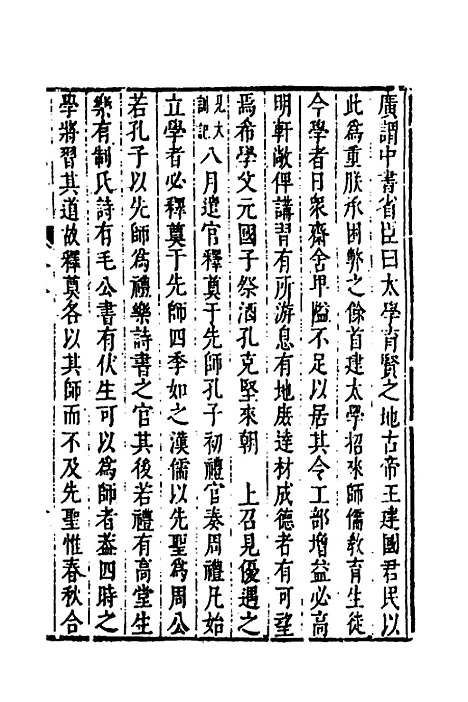 廣謂中書省臣曰太學育賢之地古帝王建國君民以
此為重朕承困弊之餘首建太學招來師儒教育生徒
今學者日衆齋舍卑隘不足以居其令工部增益必高
明軒敞俾講習有所游息有地庶達材成德者有可望
焉希學父元國子祭酒孔克堅來朝　上召見優遇之
見大訓記八月遣官釋奠于先師孔子初禮官奏周禮凡始
立學者必釋奠于先師四季如之漢儒以先聖為周公
若孔子以先師為禮樂詩書之官其後若禮有高堂生
樂有制氏詩有毛公書有伏生可以為師者葢四時之
學將習其道故釋奠各以其師而不及先聖惟春秋合